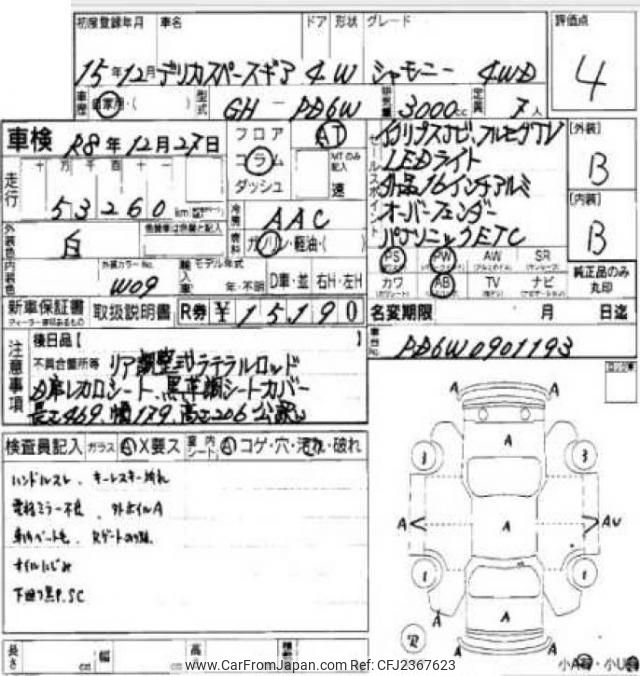 初度登録年月 車名 ドア 形状 グレード 評価点
15年12月 デリカスペースギア 4 W シャモニー 4WD 4
車歴 自家用・( ) 型式 GH-PD6W 排気量 3000cc 定員 7人
車検 R8年12月27日
フロア AT
コラム MTのみ記入
ダッシュ 速
LEDライト
外品16インチアルミ
オーバーフェンダー
パナソニックETC
[外装]
B
[内装]
B
走行 十万千百十一
53260 km
冷房 AAC
外装色 白
燃料 ガソリン・軽油・( )
PS PW AW SR
カワ AB TV ナビ
純正品のみ丸印
内装色 外装カラーNo. W09
輸入車 モデル年式 年・不明 D車・並 右H・左H
新車保証書 取扱説明書 R券 ¥15190
名変期限 月 日迄
注意事項
後日品【 】
不具合箇所等 リア調整式ラテラルロッド
レカロシート、黒革調シートカバー
長さ469、幅179、高さ206
車台No. PD6W0901193
検査員記入 ガラス A・X要ス 室内シート A・コゲ・穴・汚れ・破れ
ハンドルスレ、キーレスキー
電格ミラー不良、外ホイルA
オイルにじみ
下廻り黒P.SC
A A
A
3 3
A A AU
1 1
A A A
R
長さ cm 幅 cm 高さ cm
小A 小U
www.CarFromJapan.com Ref: CFJ2367623